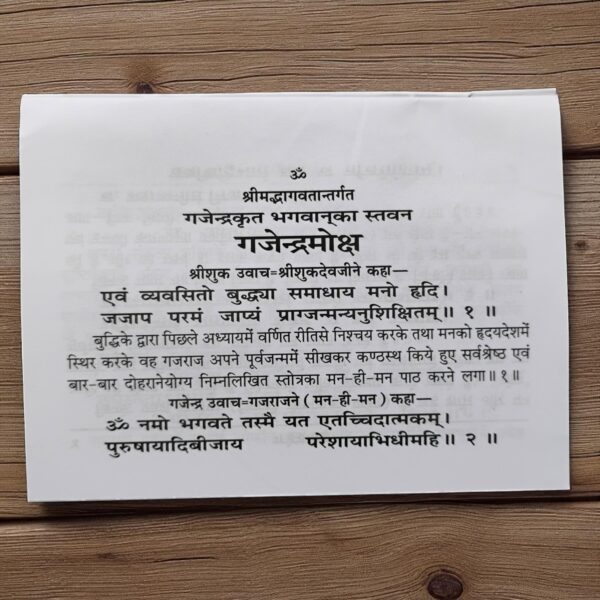 ॐ
श्रीमद्भागवतान्तर्गत
गजेन्द्रकृत भगवान्‌का स्तवन
गजेन्द्रमोक्ष
श्रीशुक उवाच=श्रीशुकदेवजीने कहा—
एवं व्यवसितो बुद्ध्या समाधाय मनो हृदि।
जजाप परमं जाप्यं प्राग्जन्मन्यनुशिक्षितम्॥ १ ॥
बुद्धिके द्वारा पिछले अध्यायमें वर्णित रीतिसे निश्चय करके तथा मनको हृदयदेशमें
स्थिर करके वह गजराज अपने पूर्वजन्ममें सीखकर कण्ठस्थ किये हुए सर्वश्रेष्ठ एवं
बार-बार दोहरानेयोग्य निम्नलिखित स्तोत्रका मन-ही-मन पाठ करने लगा॥१॥
गजेन्द्र उवाच=गजराजने ( मन-ही-मन ) कहा—
ॐ नमो भगवते तस्मै यत एतच्चिदात्मकम्।
पुरुषायादिबीजाय परेशायाभिधीमहि॥ २ ॥